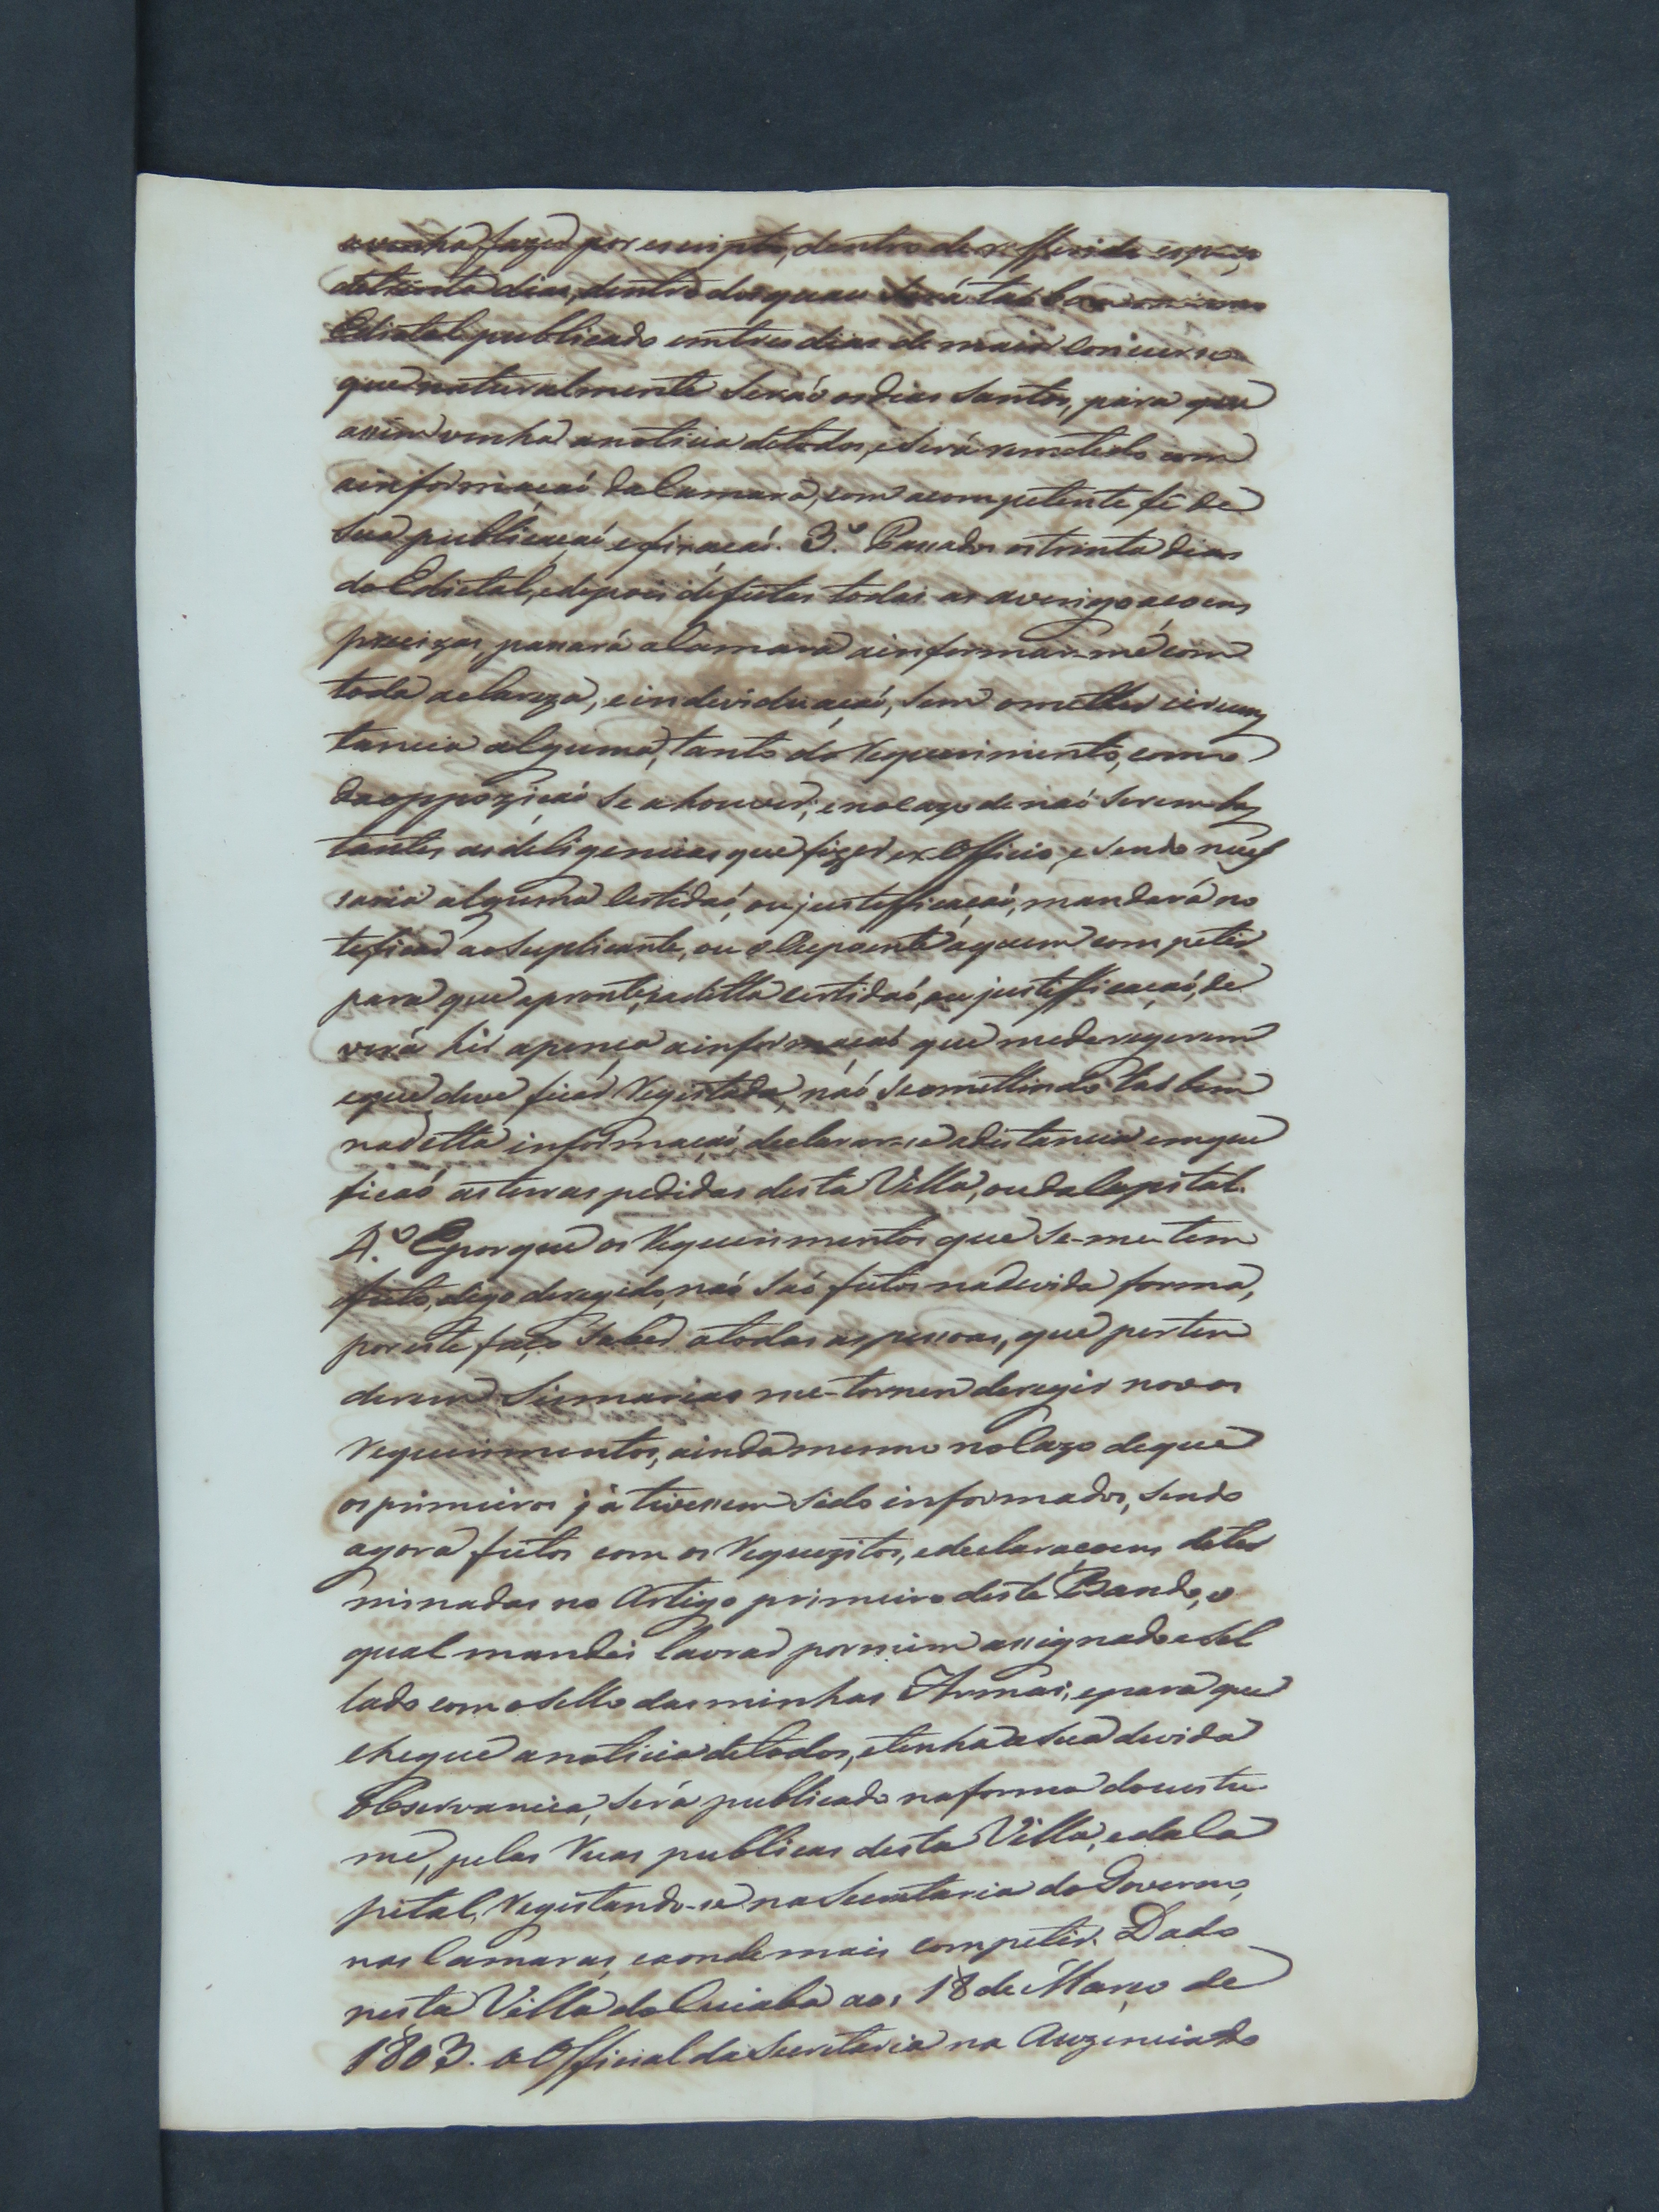 avenha fazer por escripto, dentro do refferido espaço
detrinta dias, dentro dos quaes será taõ bem
Edictal publicado emtres dias de maior concurso
que naturalmente seraõ os dias Santos, para que
assim venha a noticia detodos, e será remetido com
ainformaçaõ da Camara, com acompetente fé de
sua publicaçaõ efixaçaõ. 3.º Passados os trinta dias
do Edictal, edepois defeitas todas as averigoaçoens
precizas, passará a Camara ainformar-me com
toda aclareza, eindeviduaçaõ, sem ometter circuns
tancia alguma, tanto do Requerimento, como
da oppoziçaõ se a houver; e no cazo de naõ serem bas
tantes as deligencias que fizer ex Officio, e sendo neces
saria alguma Certidaõ, ou justefficaçaõ, mandará no
teficar ao Suplicante, ou o Oupoente aquem competir
para que apronte, e aditta certidaõ, ou justifficaçaõ, de
verá hir apença ainformaçaõ que mederegerem
eque deve ficar Registada, naõ seomettindo taõ bem
naditta informaçaõ declarar-se adistancia emque
ficaõ asterras pedidas desta Villa, ou da Capital.
4.º Eporque os Requerimentos que se-me-tem
feito, digo deregido, naõ saõ feitos nadevida forma,
por este faço saber atodas as pessoas, que perten
derem Sismarias me-tornem deregir novos
Requerimentos, ainda mesmo no Cazo deque
os primeiros já tivessem sido informados, sendo
agora feitos com os Requezitos, edeclaraçoens deter
minadas no Artigo primeiro deste Bando, o
qual mandei lavrar por mim assignado e Sel
lado com o sello das minhas Armas; epara que
chegue anoticia detodos, etenha a sua devida
Observancia, será publicado naforma docustu
me, pelas Ruas publicas desta Villa, e da Ca
pital, Registando-se na Secretaria do Governo,
nas Camaras, eaonde mais competir. Dado
nesta Villa do Cuiabá aos 18 de Março de
1803. O Official da Secretaria na Auzencia do